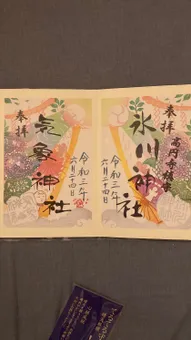 奉拝
高円寺鎮座
氷川神社
令和三年
六月二十四日
奉拝
気象神社
令和三年
六月二十四日